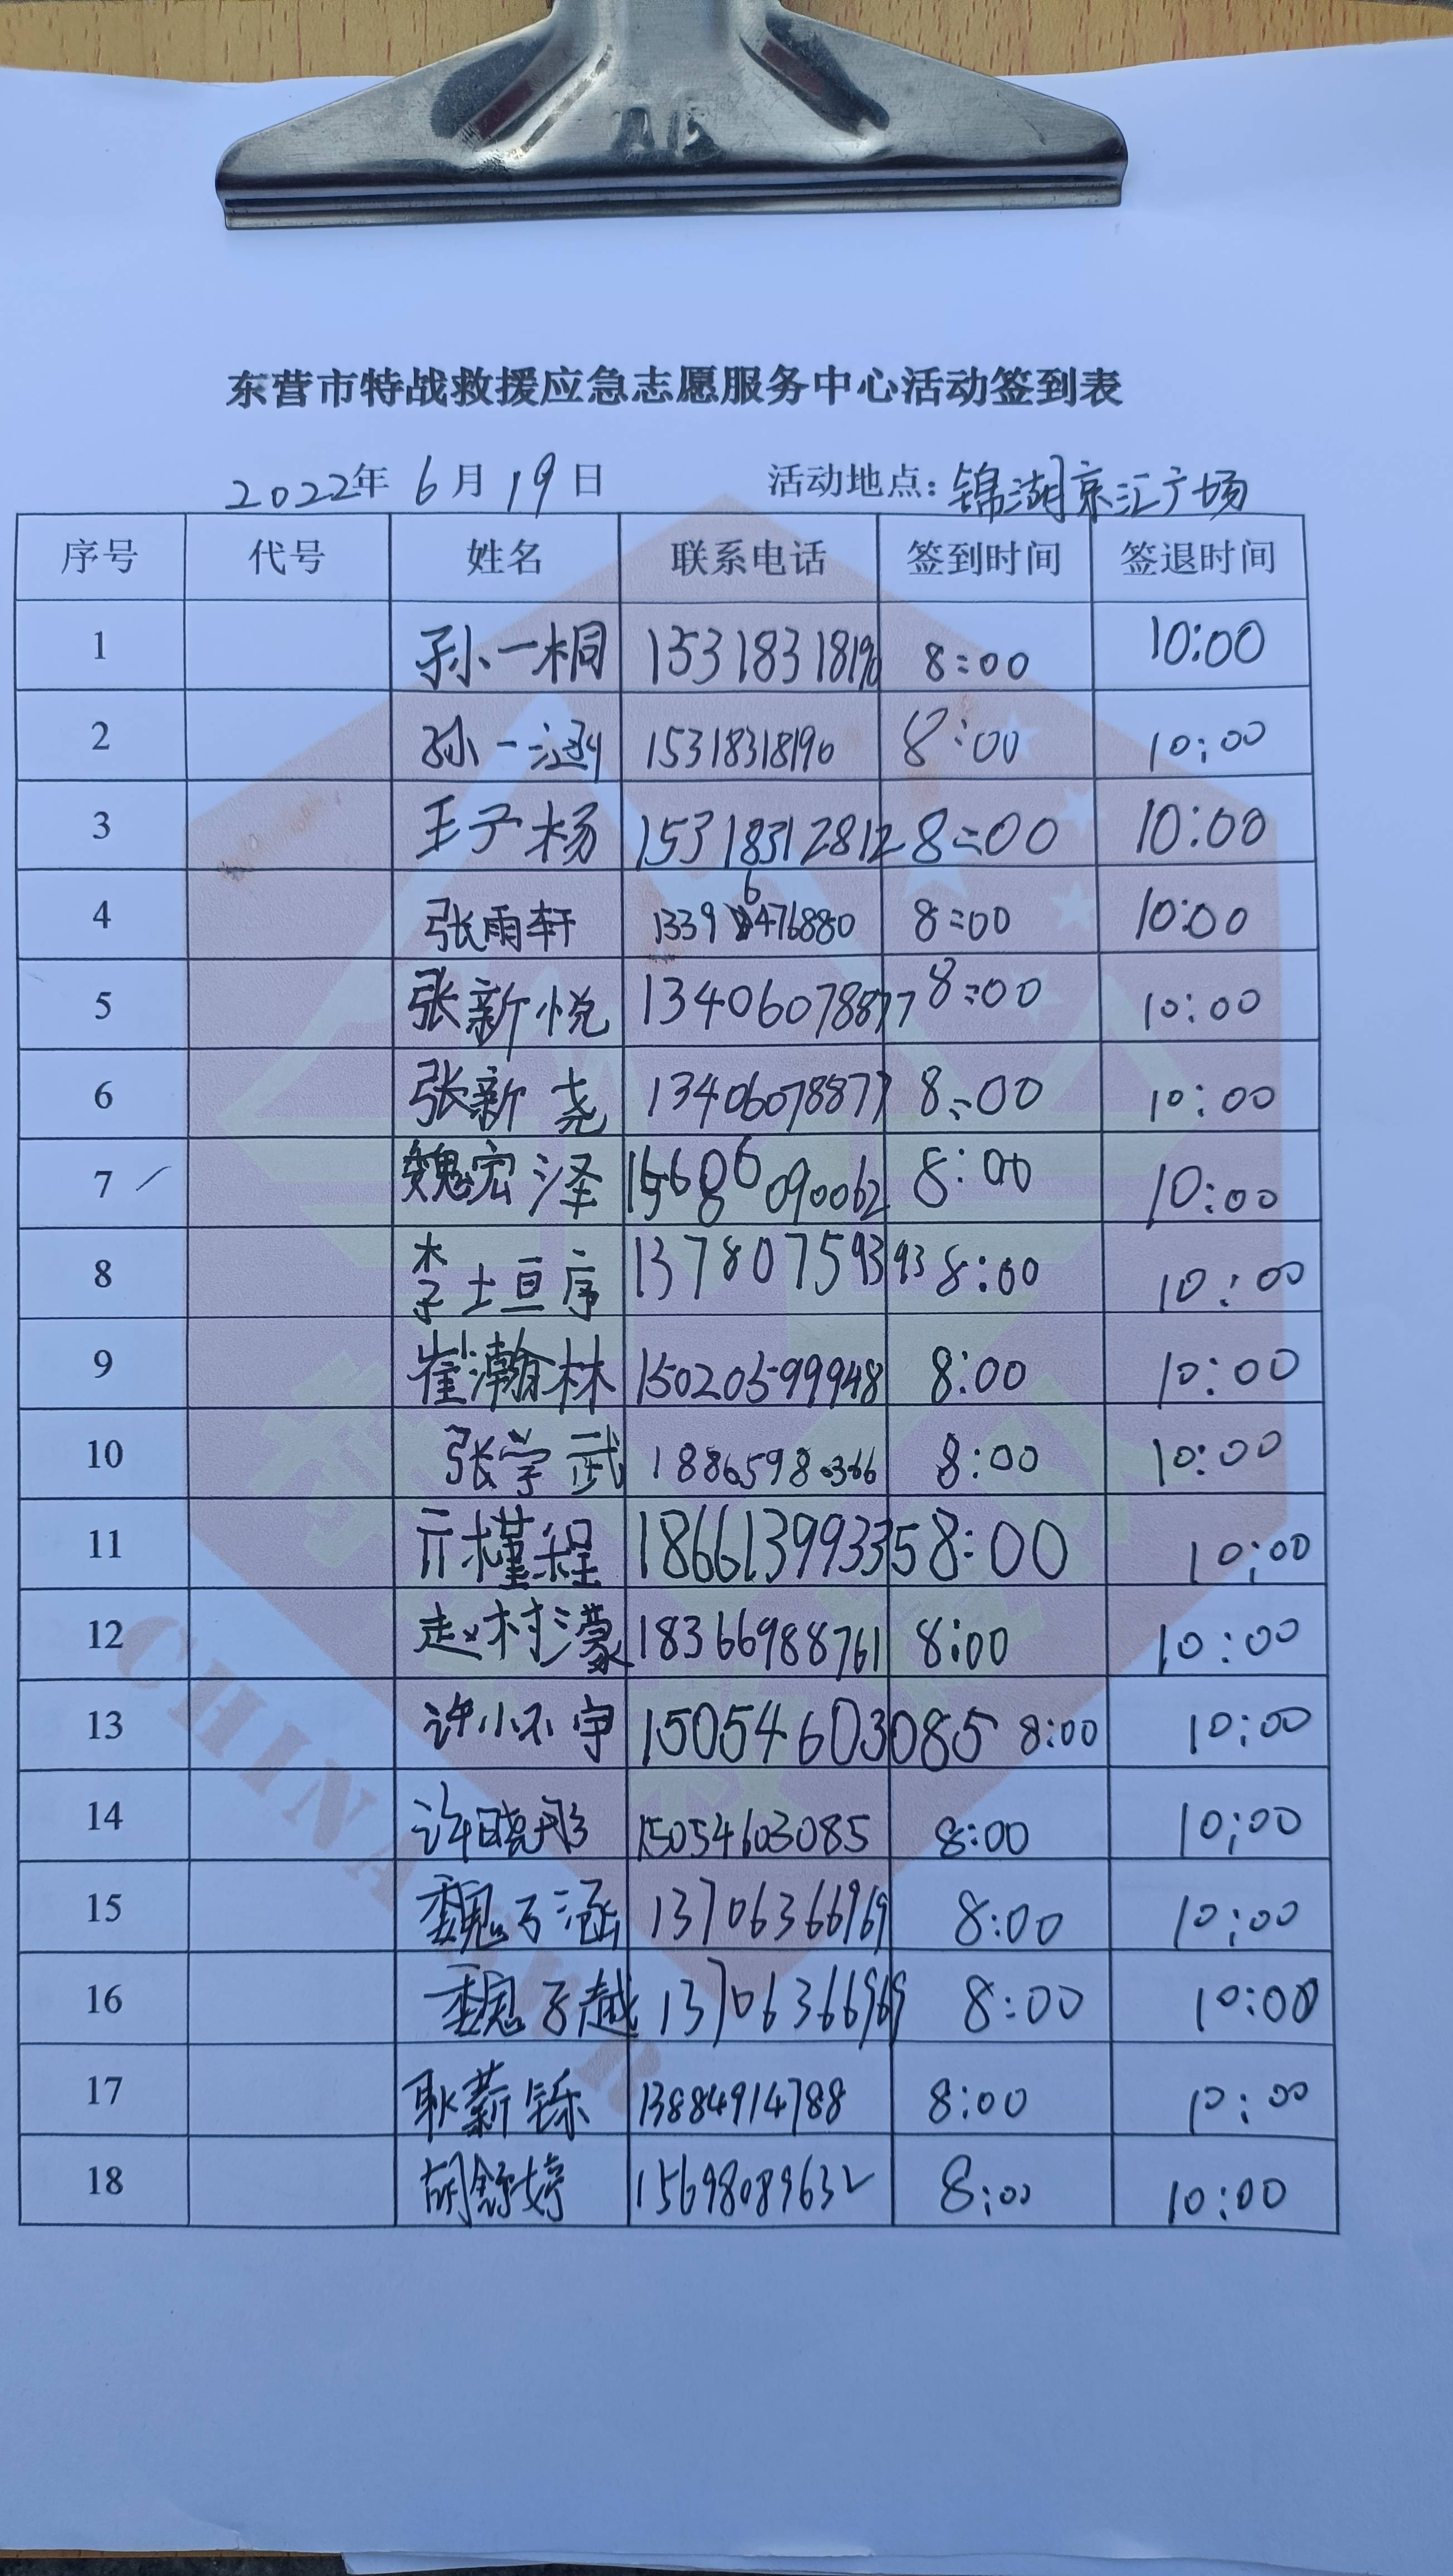 东营市特战救援应急志愿服务中心活动签到表
2022年 6月 19日 活动地点：锦湖京汇广场
序号 代号 姓名 联系电话 签到时间 签退时间
1 孙一桐 15318318190 8:00 10:00
2 孙一涵 15318318190 8:00 10:00
3 王子杨 15318312812 8:00 10:00
4 张雨轩 13396476880 8:00 10:00
5 张新悦 13406078877 8:00 10:00
6 张新尧 13406078877 8:00 10:00
7 魏宏泽 15686090062 8:00 10:00
8 李垣序 13780759393 8:00 10:00
9 崔瀚林 15020599948 8:00 10:00
10 张学武 18865980366 8:00 10:00
11 亓槿程 18661399335 8:00 10:00
12 赵村濛 18366988761 8:00 10:00
13 许小不宇 15054603085 8:00 10:00
14 许晓彤 15054603085 8:00 10:00
15 魏子涵 13706366969 8:00 10:00
16 魏子越 13706366969 8:00 10:00
17 耿薪铄 13884914788 8:00 10:00
18 胡舒婷 15698089632 8:00 10:00
CHINA